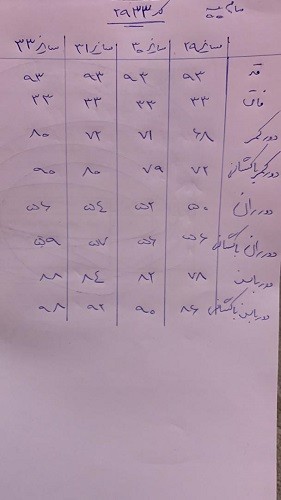 مام کد ۲۹۳۳
سایز ۲۹ سایز ۳۰ سایز ۳۱ سایز ۳۳
قد ۹۳ ۹۳ ۹۳ ۹۳
فاق ۳۳ ۳۳ ۳۳ ۳۳
دور کمر ۶۸ ۷۱ ۷۲ ۸۰
دور کمر باکشسانی ۷۲ ۷۹ ۸۰ ۹۰
دور ران ۵۰ ۵۲ ۵۴ ۵۶
دور ران باکشسانی ۵۶ ۵۶ ۵۷ ۵۹
دور باسن ۷۸ ۸۲ ۸۴ ۸۸
دور باسن باکشسانی ۸۶ ۹۰ ۹۲ ۹۸